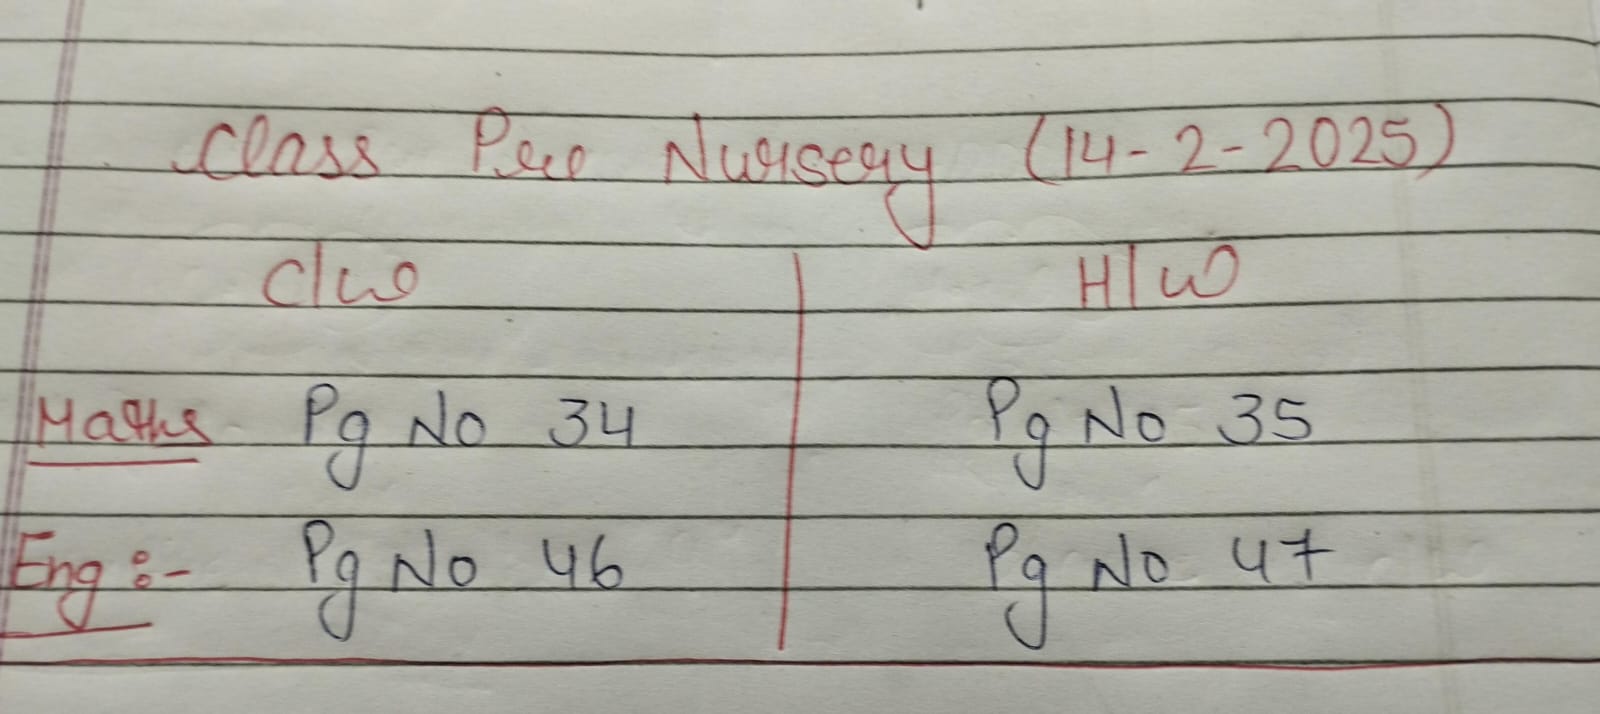 Class Pre Nursery (14-2-2025)
C/w H/w
Maths Pg No 34 Pg No 35
Eng :- Pg No 46 Pg No 47